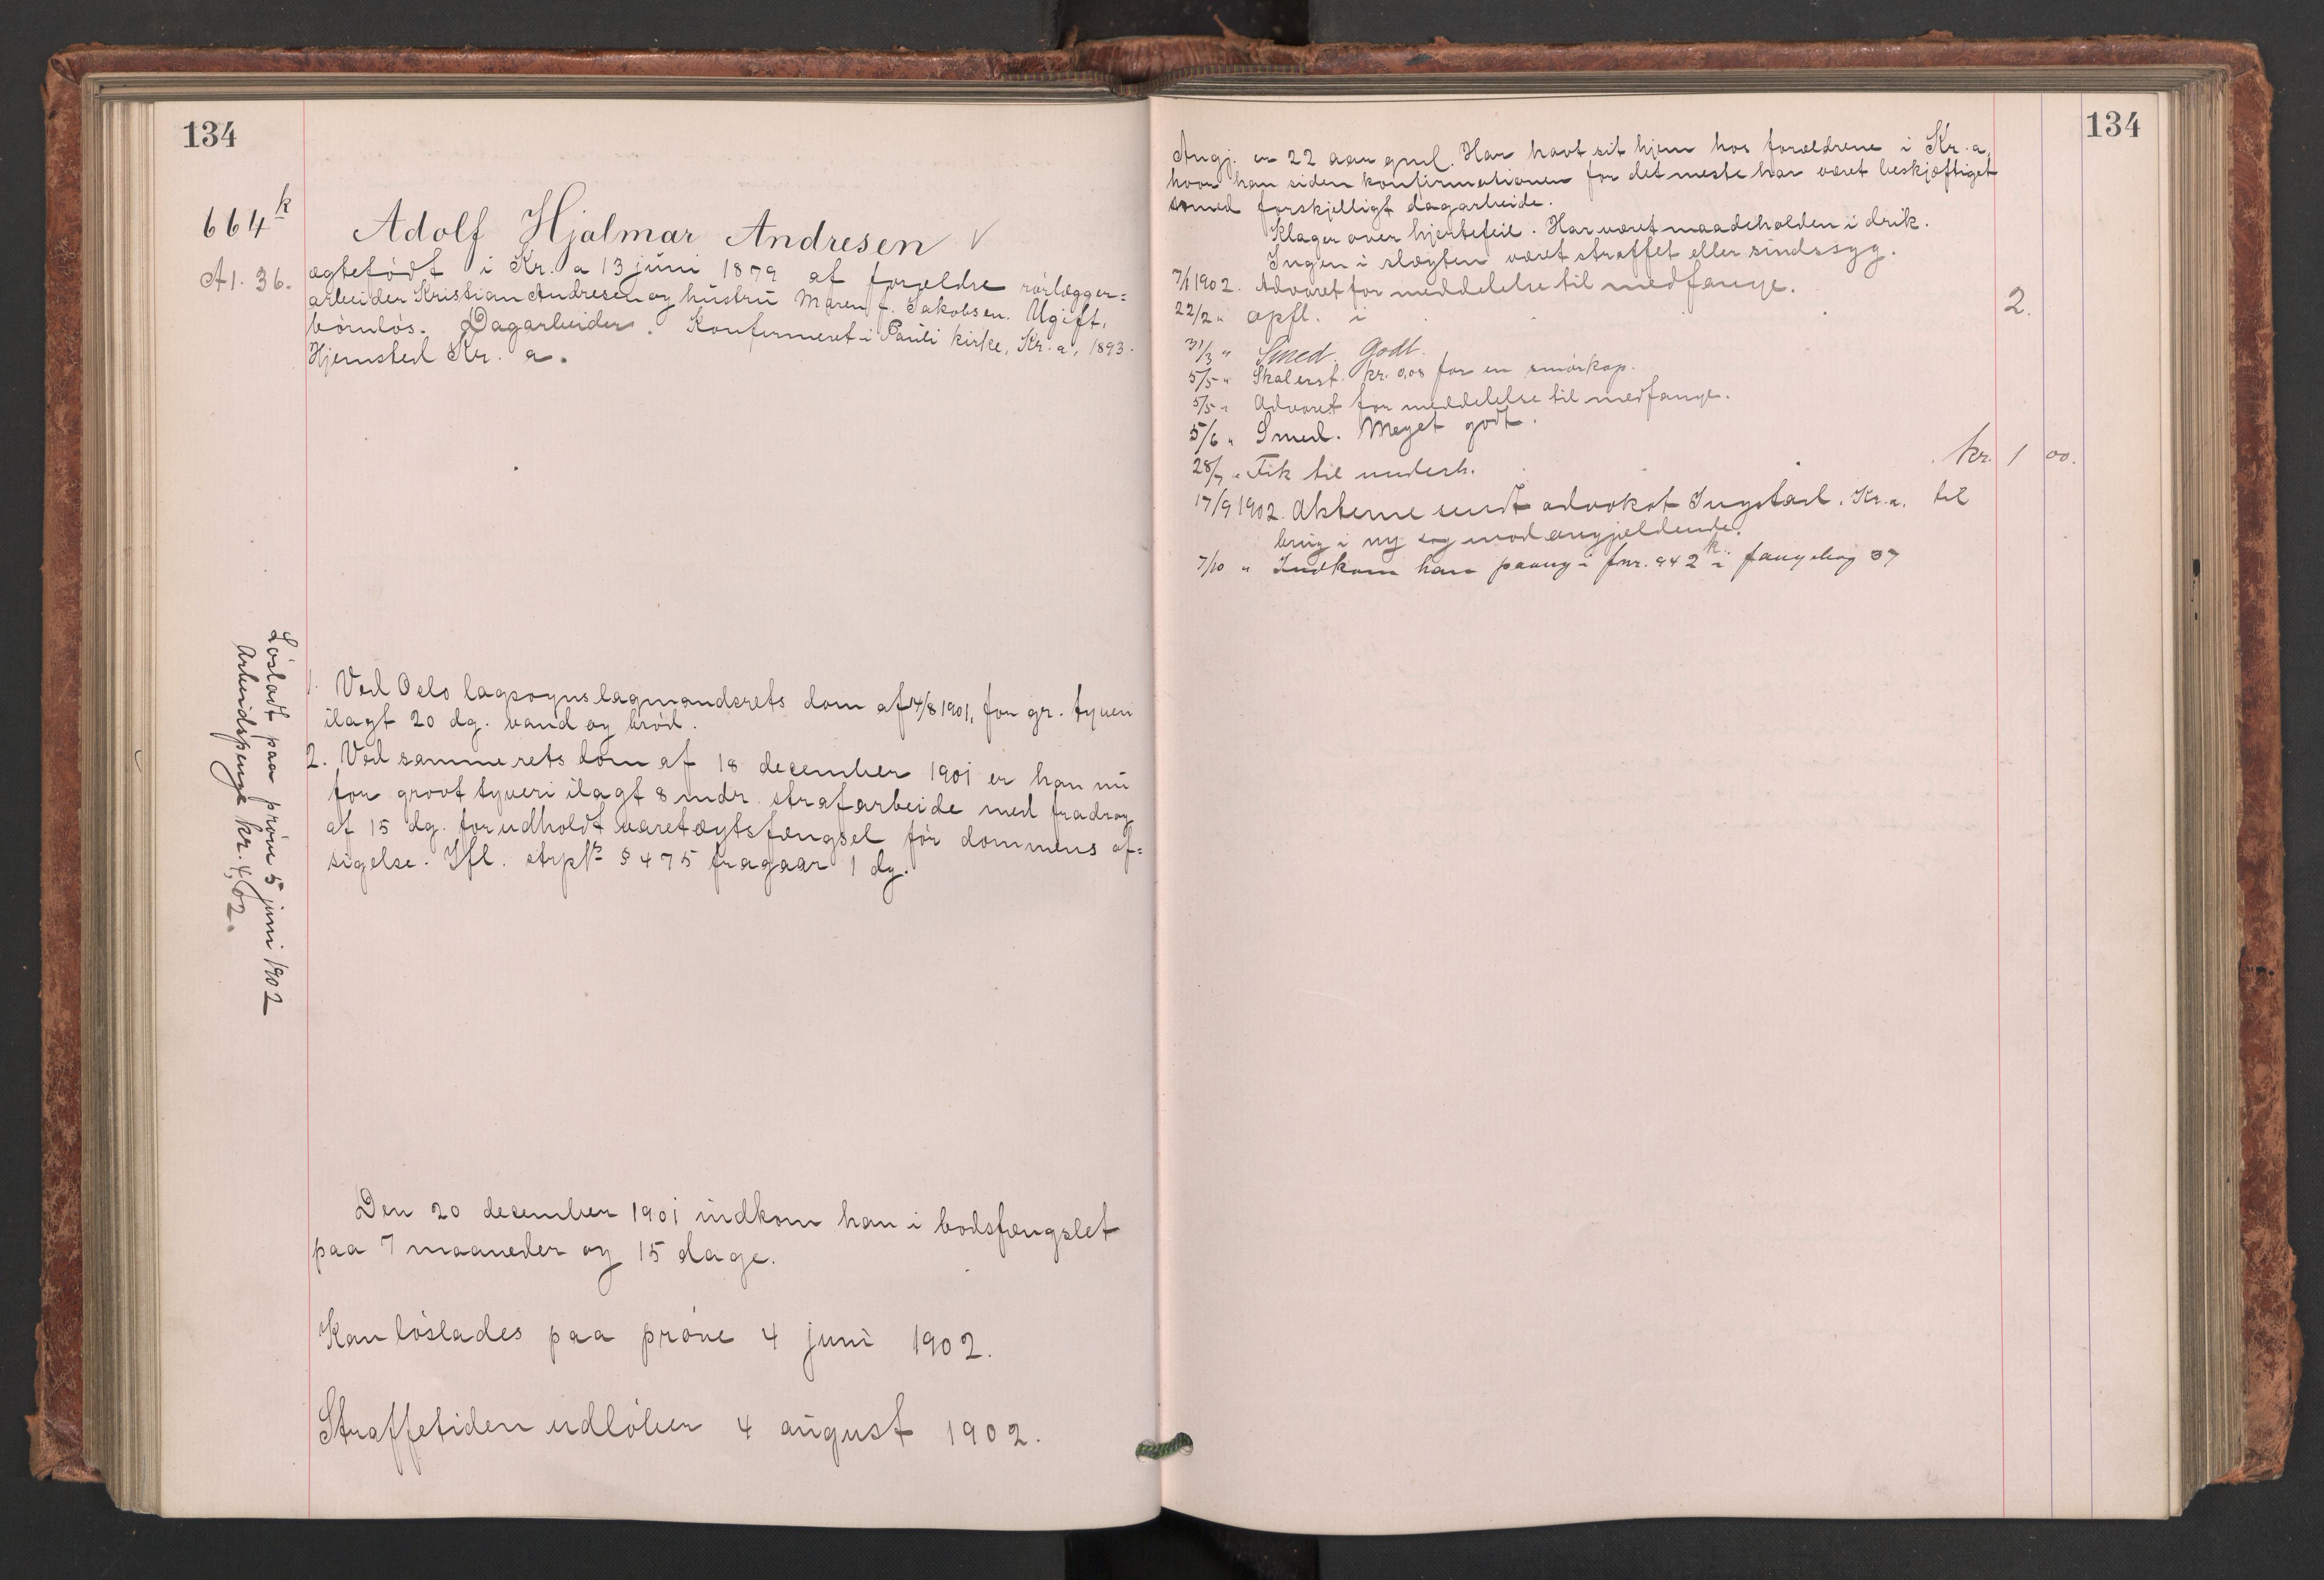 134
664 k
A1. 36.
Adolf Hjalmar Andresen
ægtefødt i Kr. a 13 juni 1879 af forældre rørlægger=
arbeider Kristian Andresen og hustru Maren f. Jakobsen. Ugift,
børnløs. Dagarbeider. Konfirmeret i Pauli kirke, Kr. a, 1893.
Hjemsted Kr. a.
Løsladt paa prøve 5 juni 1902
Arbeidspenge kr. 4,02.
1. Ved Oslo lagsogns lagmandsrets dom af 14/8 1901, for gr. tyveri
ilagt 20 dg. vand og brød.
2. Ved samme rets dom af 18 december 1901 er han nu
for grovt tyveri ilagt 8 mdr. strafarbeide med fradrag
af 15 dg. for udholdt varetægtsfængsel før dommens af=
sigelse. Ifl. strpl § 475 fragaar 1 dg.
Den 20 december 1901 indkom han i bodsfængslet
paa 7 maaneder og 15 dage.
Kan løslades paa prøve 4 juni 1902.
Straffetiden udløber 4 august 1902.
134
Angj. er 22 aar gml. Har havt sit hjem hos forældrene i Kr. a,
hvor han siden konfirmationen for det meste har været beskjæftiget
med forskjelligt dagarbeide.
Klager over hjertefeil. Har været maadeholden i drik.
Ingen i slægten været straffet eller sindssyg.
7/1 1902. Advaret for meddelelse til medfange.
22/2 " opfl. i 2.
31/3 " Smed. Godt.
5/5 " Skal erst. kr. 0,08 for en smørkop.
5/5 " Advaret for meddelelse til medfange.
5/6 " Smed. Meget godt.
28/7 " Fik til underh. kr. 1 00.
17/9 1902. Akterne sendt advokat Ingstad, Kr. a. til
brug i ny sag mod angjældende.
7/10 " Indkom han paany i fnr. 942 k i fangebog 37